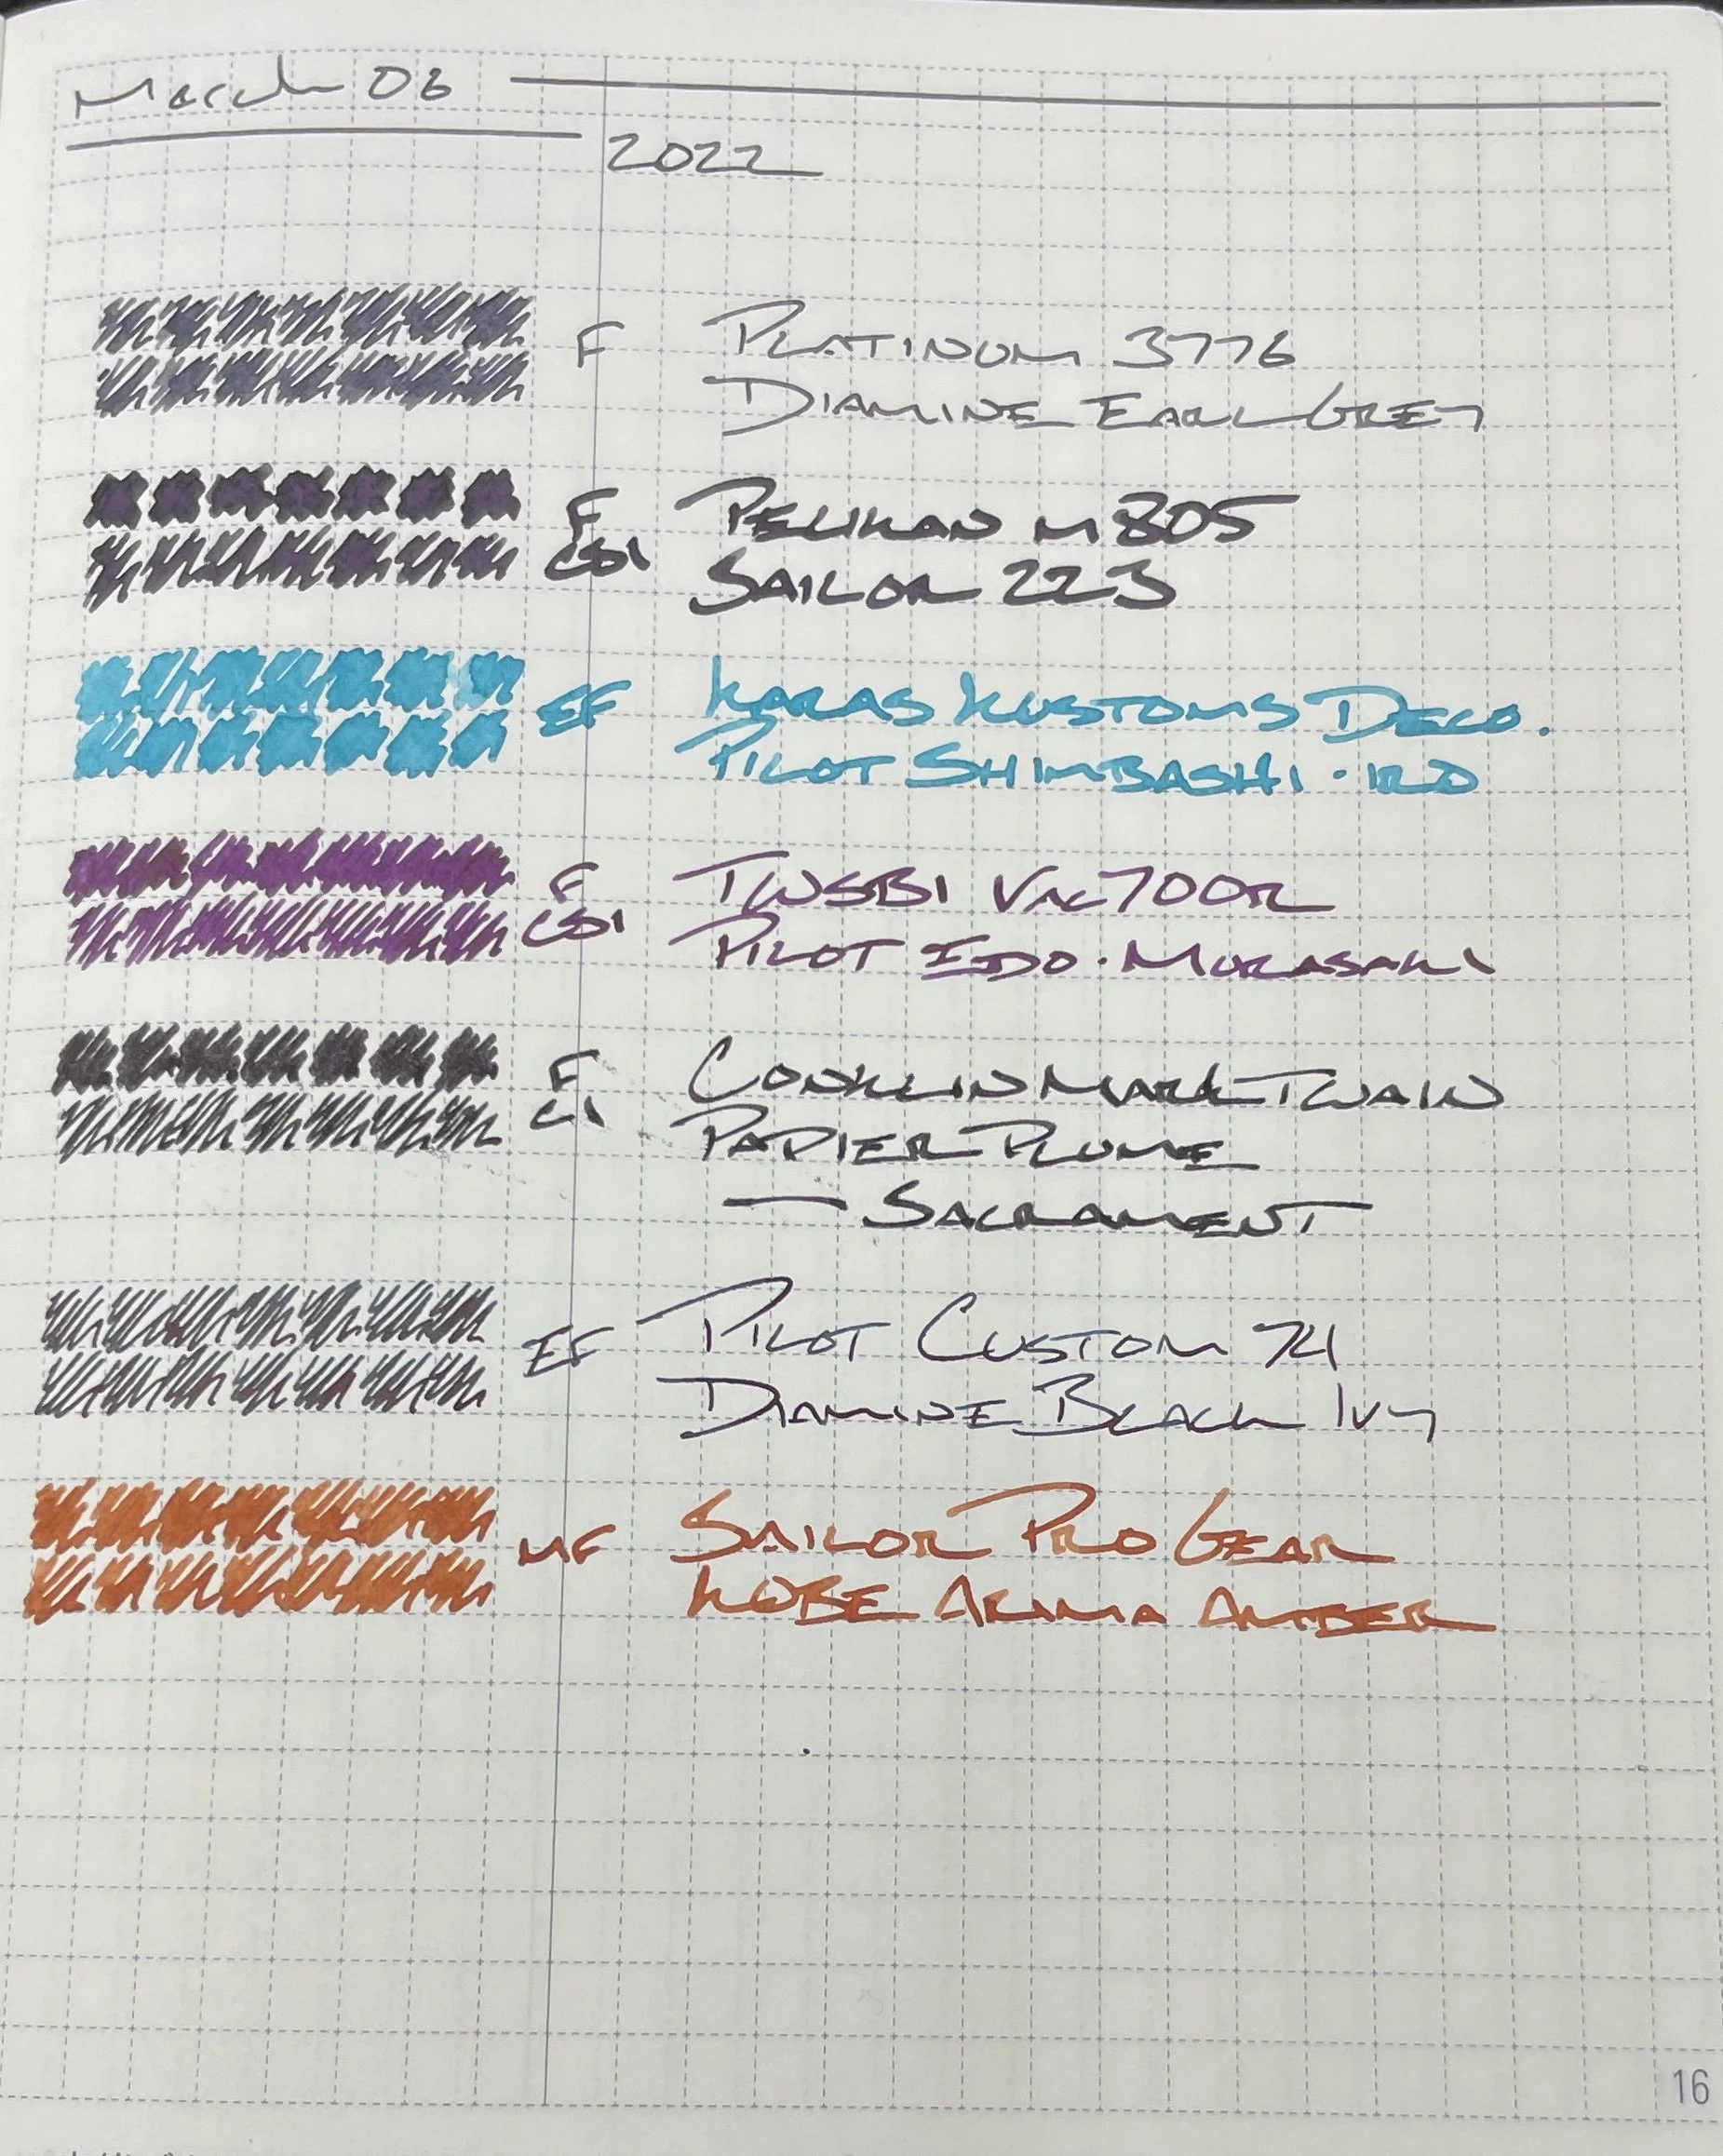 March 06
2022
F PLATINUM 3776
DIAMINE EARL GREY
F PELIKAN M805
CSI SAILOR 223
EF KARAS KUSTOMS DECO.
PILOT SHIMBASHI·IRO
F TWSBI VAC700R
CSI PILOT EDO·MURASAKI
F CONKLIN MARK TWAIN
CI PAPIER PLUME
— SACRAMENT
EF PILOT CUSTOM 74
DIAMINE BLACK IVY
MF SAILOR PRO GEAR
KOBE ARIMA AMBER
16